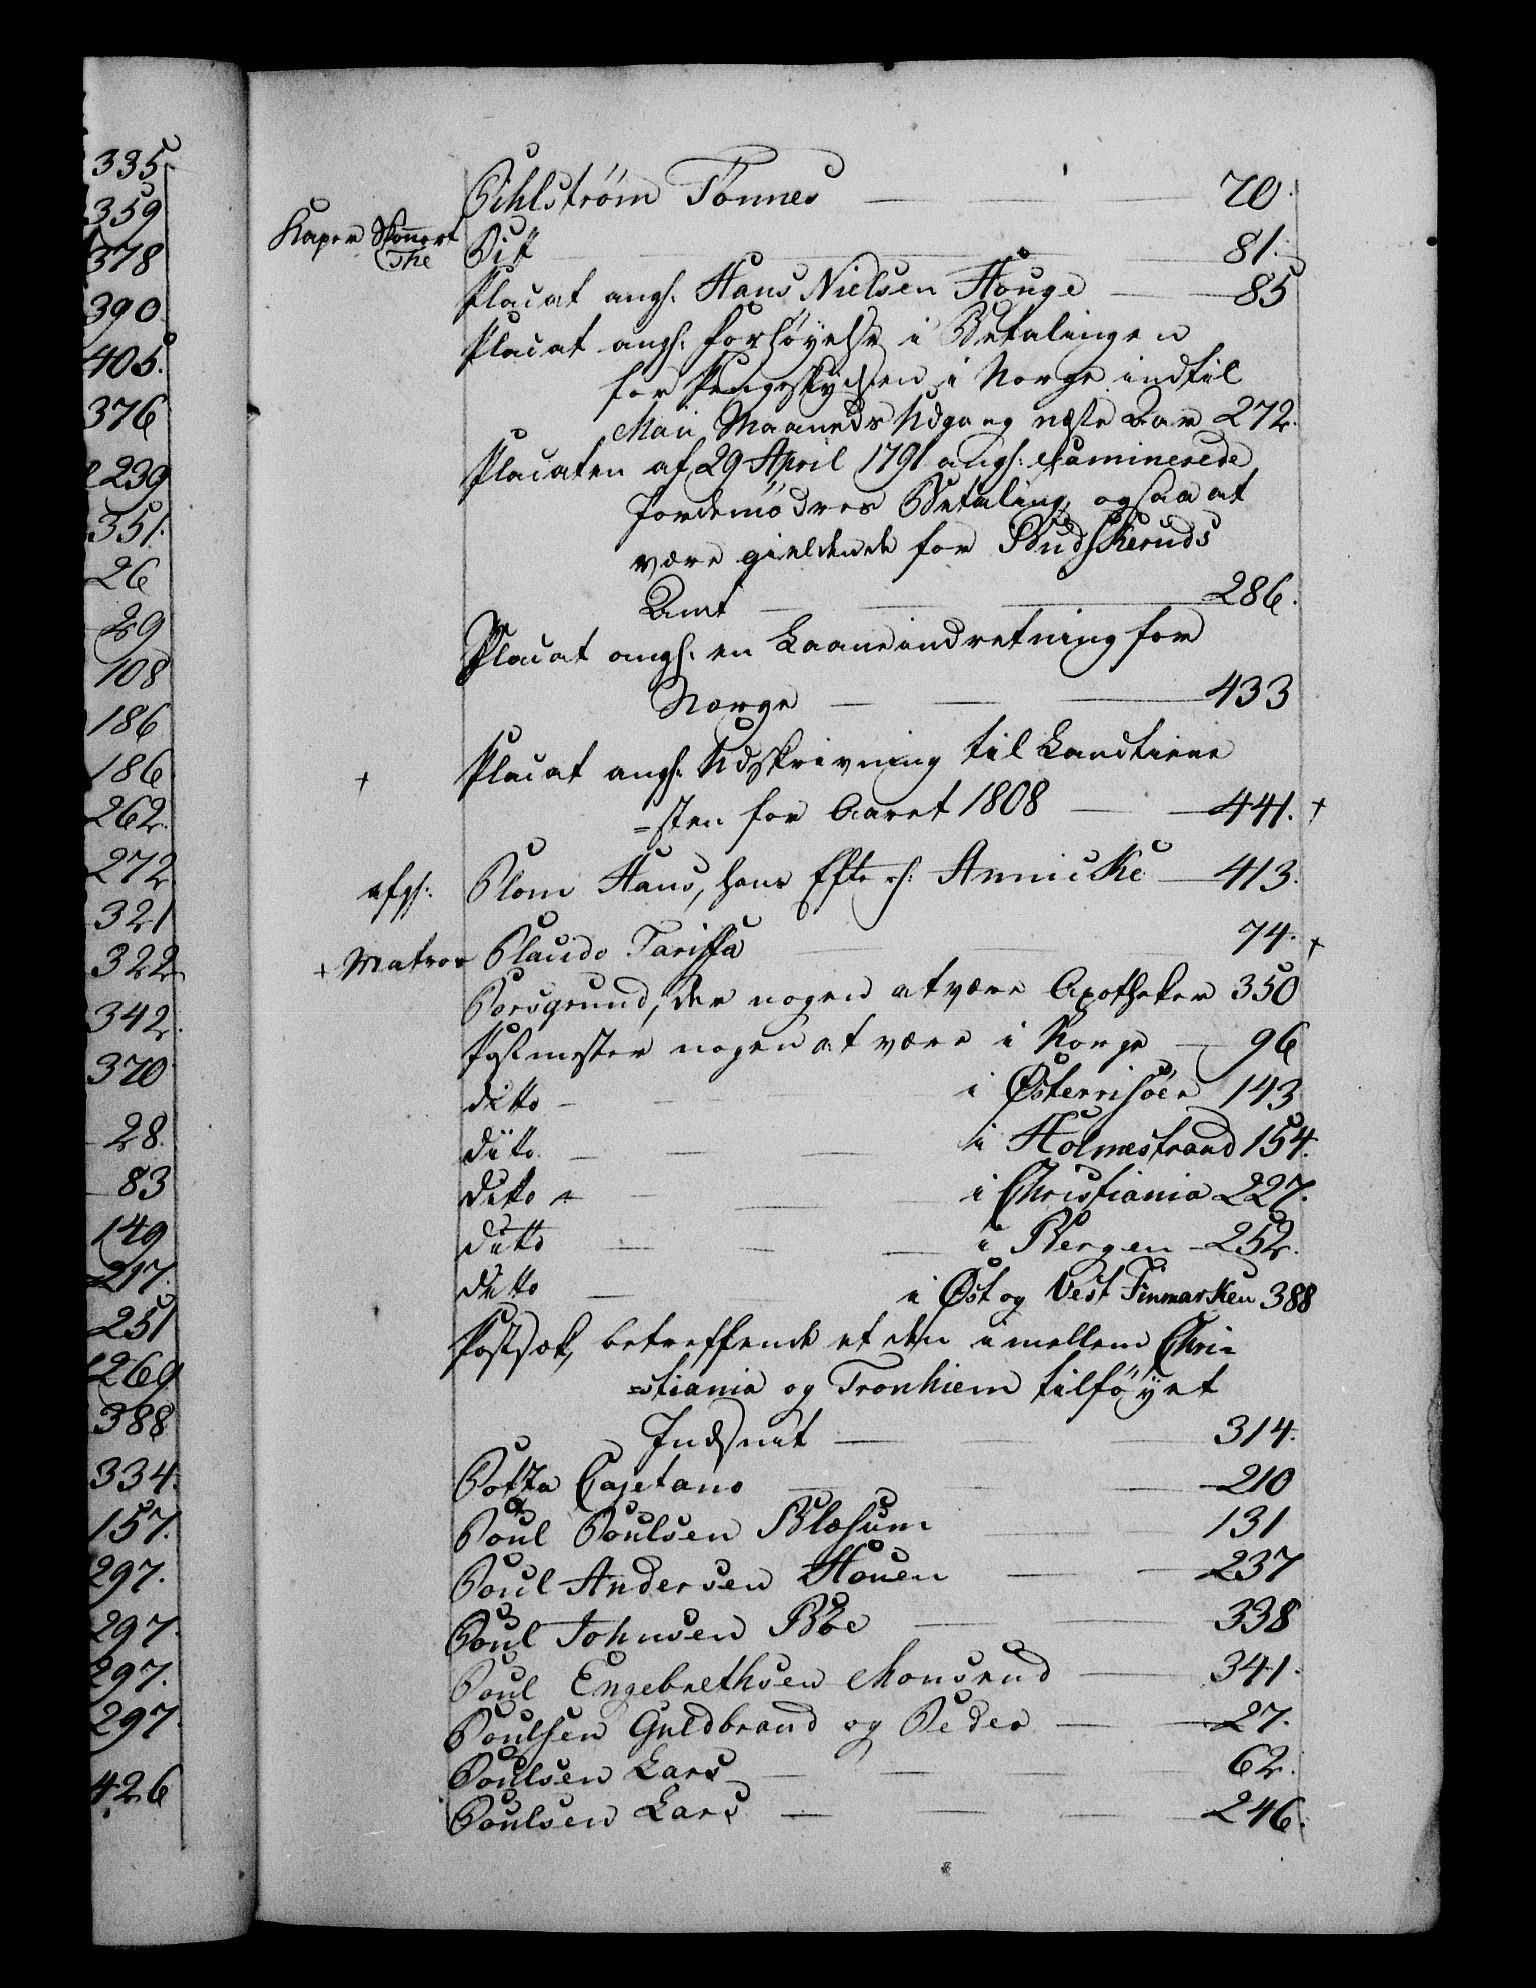 335
359
378
390
405.
376
239
351.
26
29
108
186
186
262.
272
321
322
342.
370
28.
83
149
217.
251
269
388
334.
157.
297.
297.
297.
297.
426
Pihlstrøm Tønnes 70.
Kaper Skonnert The Pit 81.
Placat angl. Hans Nielsen Houge 85
Placat angl: Forhøyelse i Betalingen
for Skydsen i Norge indtil
Maii Maaneds Udgang næste Aar 272.
Placaten af 29 April 1791 angl: examinerede
Jordemødres Betaling, ogsaa at
være gieldende for Budskeruds
Amt 286.
Placat angl: en Laaneindretning for
Norge 433
+ Placat angl: Udskrivning til Landtiene
=sten for Aaret 1808 441. +
afgl: Plom Hans, hans Efterl: Annicke 413.
+ Matros Placido Tariffa 74. +
Porsgrund, der nogen at være Apotheker 350
Postmester nogen at være i Norge 96
ditto i Østerrisöer 143
ditto i Holmestrand 154.
ditto i Christiania 227.
ditto i Bergen 252.
ditto i Øst og Vest Finmarken 388
Postsæk, betreffende et den imellem Chri=
=stiania og Tronhiem tilföyet
Indsnit 314.
Potta Cajetano 210
Poul Poulsen Blæsum 131
Poul Andersen Houen 237
Poul Johnsen Böe 338
Poul Engebrethsen Monsrud 341.
Poulsen Guldbrand og Peder 27.
Poulsen Lars 62.
Poulsen Lars 246.